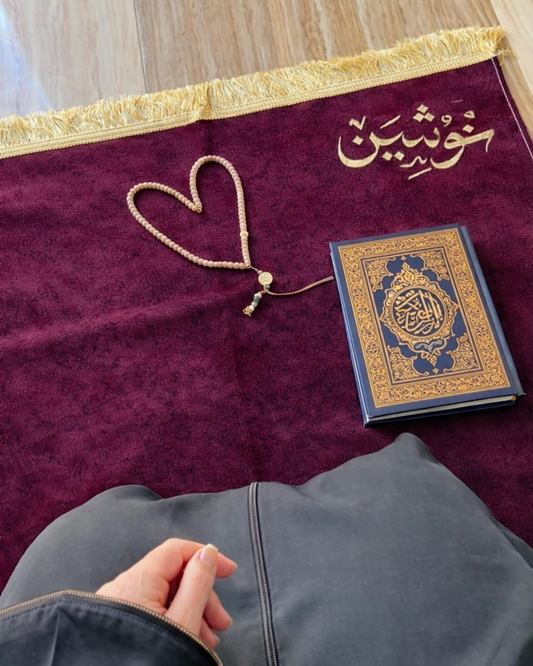 نُوُشِينَ
القرآن الكريم